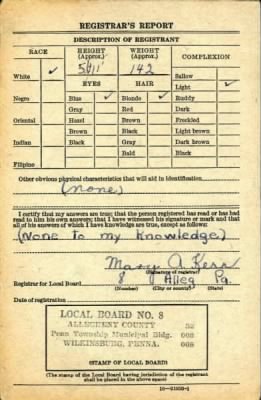 REGISTRAR'S REPORT
DESCRIPTION OF REGISTRANT
RACE HEIGHT (Approx.) WEIGHT (Approx.) COMPLEXION
5'11" 142
White ✓ Sallow
EYES HAIR Light ✓
Negro Blue ✓ Blonde ✓ Ruddy
Gray Red Dark
Oriental Hazel Brown Freckled
Brown Black Light brown
Indian Black Gray Dark brown
Bald Black
Filipino
Other obvious physical characteristics that will aid in identification
(none)
I certify that my answers are true; that the person registered has read or has had
read to him his own answers; that I have witnessed his signature or mark and that
all of his answers of which I have knowledge are true, except as follows:
(None to my knowledge)
Mary A. Kerr
(Signature of registrar)
Registrar for Local Board 8 Alleg Pa.
(Number) (City or county) (State)
Date of registration
LOCAL BOARD NO. 8
ALLEGHENY COUNTY 52
Penn Township Municipal Bldg. 003
WILKINSBURG, PENNA. 008
(STAMP OF LOCAL BOARD)
(The stamp of the Local Board having jurisdiction of the registrant
shall be placed in the above space)